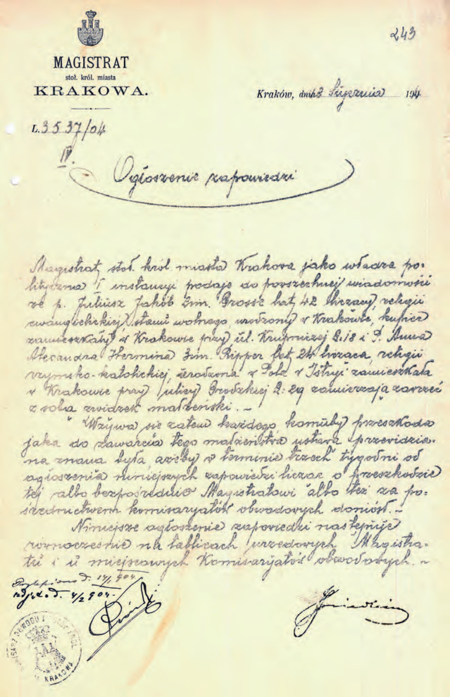 243
MAGISTRAT
stoł. król. miasta
KRAKOWA.
Kraków, dnia 13 Stycznia 1904
L. 3537/04
IV.
Ogłoszenie zapowiedzi
Magistrat stoł. król. miasta Krakowa jako władza po-
lityczna I instancyi podaje do powszechnej wiadomości
że p. Juliusz Jakób 2im. Grosse lat 42 liczący, religii
ewangelickiej, stanu wolnego urodzony w Krakowie, kupiec
zamieszkały w Krakowie przy ul. Krupniczej L: 18 i P. Anna
Alexandra Hermina 3im. Ripper lat 24 licząca, religii
rzymsko-katolickiej, urodzona w Pola w Istryi zamieszkała
w Krakowie przy ulicy Grodzkiej L: 29 zamierzają zawrzeć
z sobą związek małżeński. —
Wzywa się zatem każdego komuby przeszkoda
jaka do zawarcia tego małżeństwa ustawą przewidzia-
na znana była, ażeby w terminie trzech tygodni od
ogłoszenia niniejszych zapowiedzi licząc o przeszkodzie
tej albo bezpośrednio Magistratowi albo też za po-
średnictwem komisaryatów obwodowych doniósł. —
Niniejsze ogłoszenie zapowiedzi następuje
równocześnie na tablicach urzędowych Magistra-
tu i u miejscowych Komisaryatów obwodowych. —
KRAKOWIE